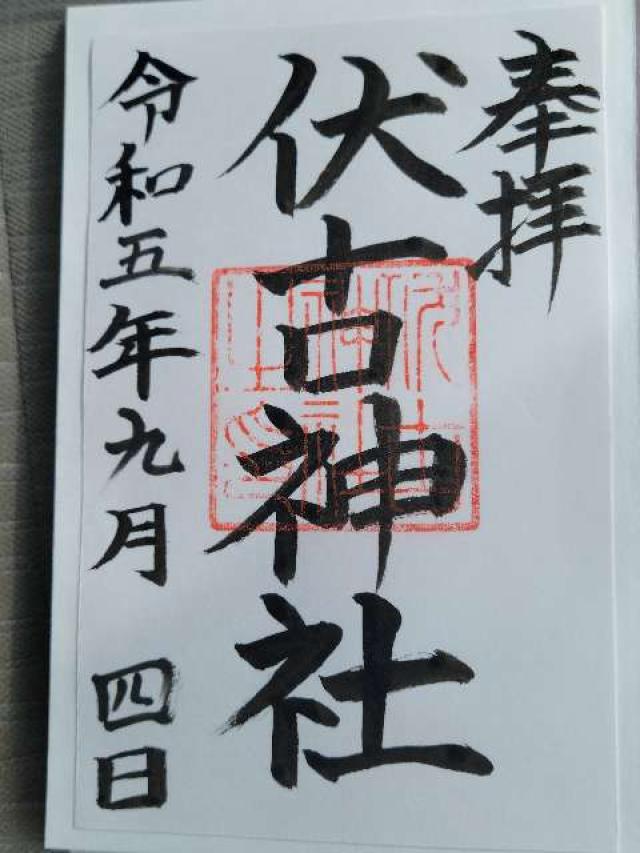 奉拝
伏古神社
令和五年九月 四日